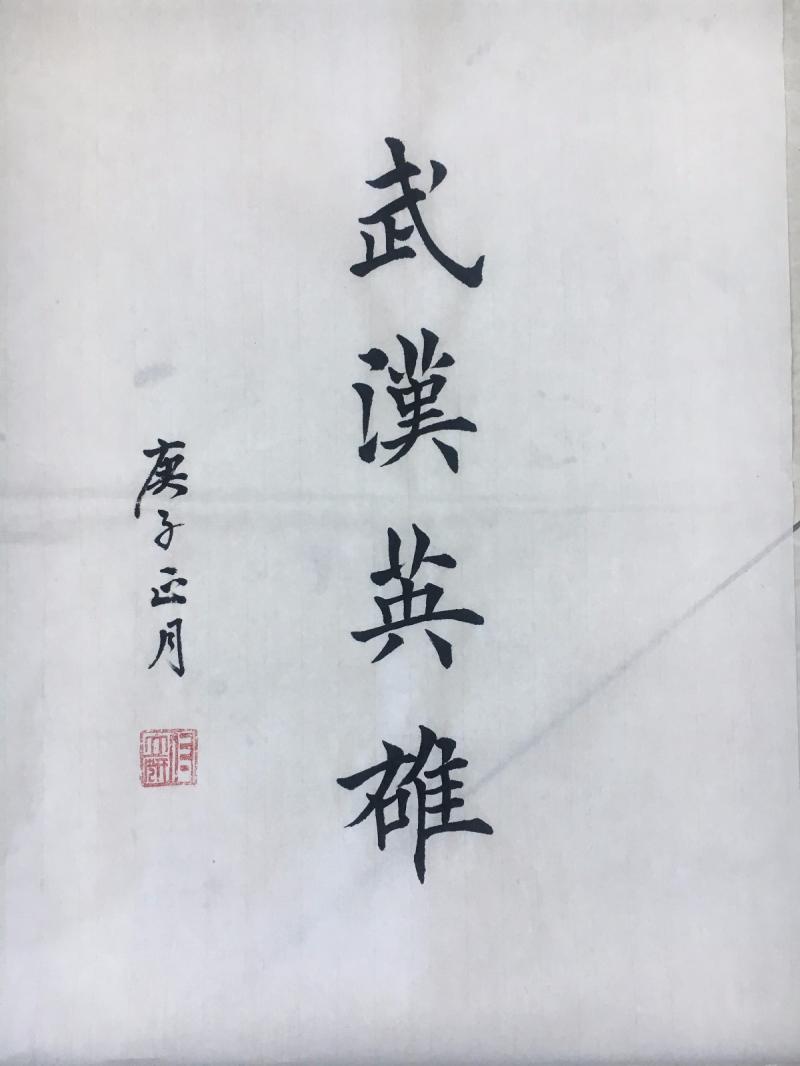 武漢英雄
庚子正月